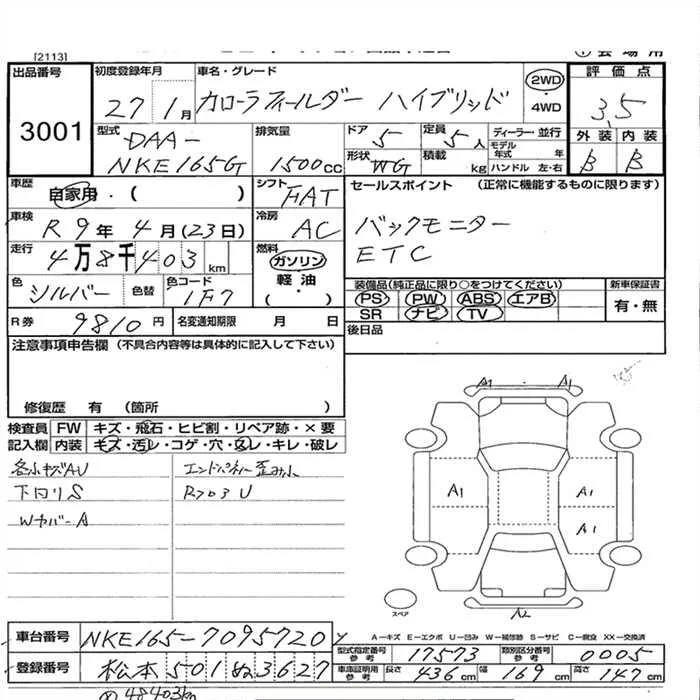 [2113]
出品番号 3001
初度登録年月 27 1月
車名・グレード カローラフィールダー ハイブリッド
2WD・4WD
評価点 3.5
外装 B 内装 B
型式 DAA-NKE165G
排気量 1500cc
ドア 5
定員 5人
形状 WG
積載 kg
ディーラー・並行
モデル年式 年
ハンドル 左・右
車歴 自家用・( )
シフト FAT
セールスポイント (正常に機能するものに限ります)
バックモニター
ETC
車検 R9年4月(23日)
冷房 AC
走行 4万8千403km
燃料 ガソリン 軽油・( )
色 シルバー 色替 色コード 1F7
装備品(純正品に限り○をつけてください)
PS PW ABS エアB
SR ナビ TV
新車保証書 有・無
R券 9810円 名変通知期限 月 日
後日品
注意事項申告欄 (不具合内容等は具体的に記入して下さい)
修復歴 有 (箇所 )
検査員記入欄
FW キズ・飛石・ヒビ割・リペア跡・×要
内装 キズ・汚レ・コゲ・穴・凹レ・キレ・破レ
各小キズAU
下回リS
Wカバー A
A1 A1
A1 A1
A1
A2
スペア
A-キズ E-エクボ U-凹み W-補修跡 S-サビ C-腐食 XX-交換済
車台番号 NKE165-7095720
登録番号 松本501ぬ3627
型式指定番号参考 17573 類別区分番号参考 0005
車庫証明用参考 長さ 436cm 幅 169cm 高さ 147cm
48403km